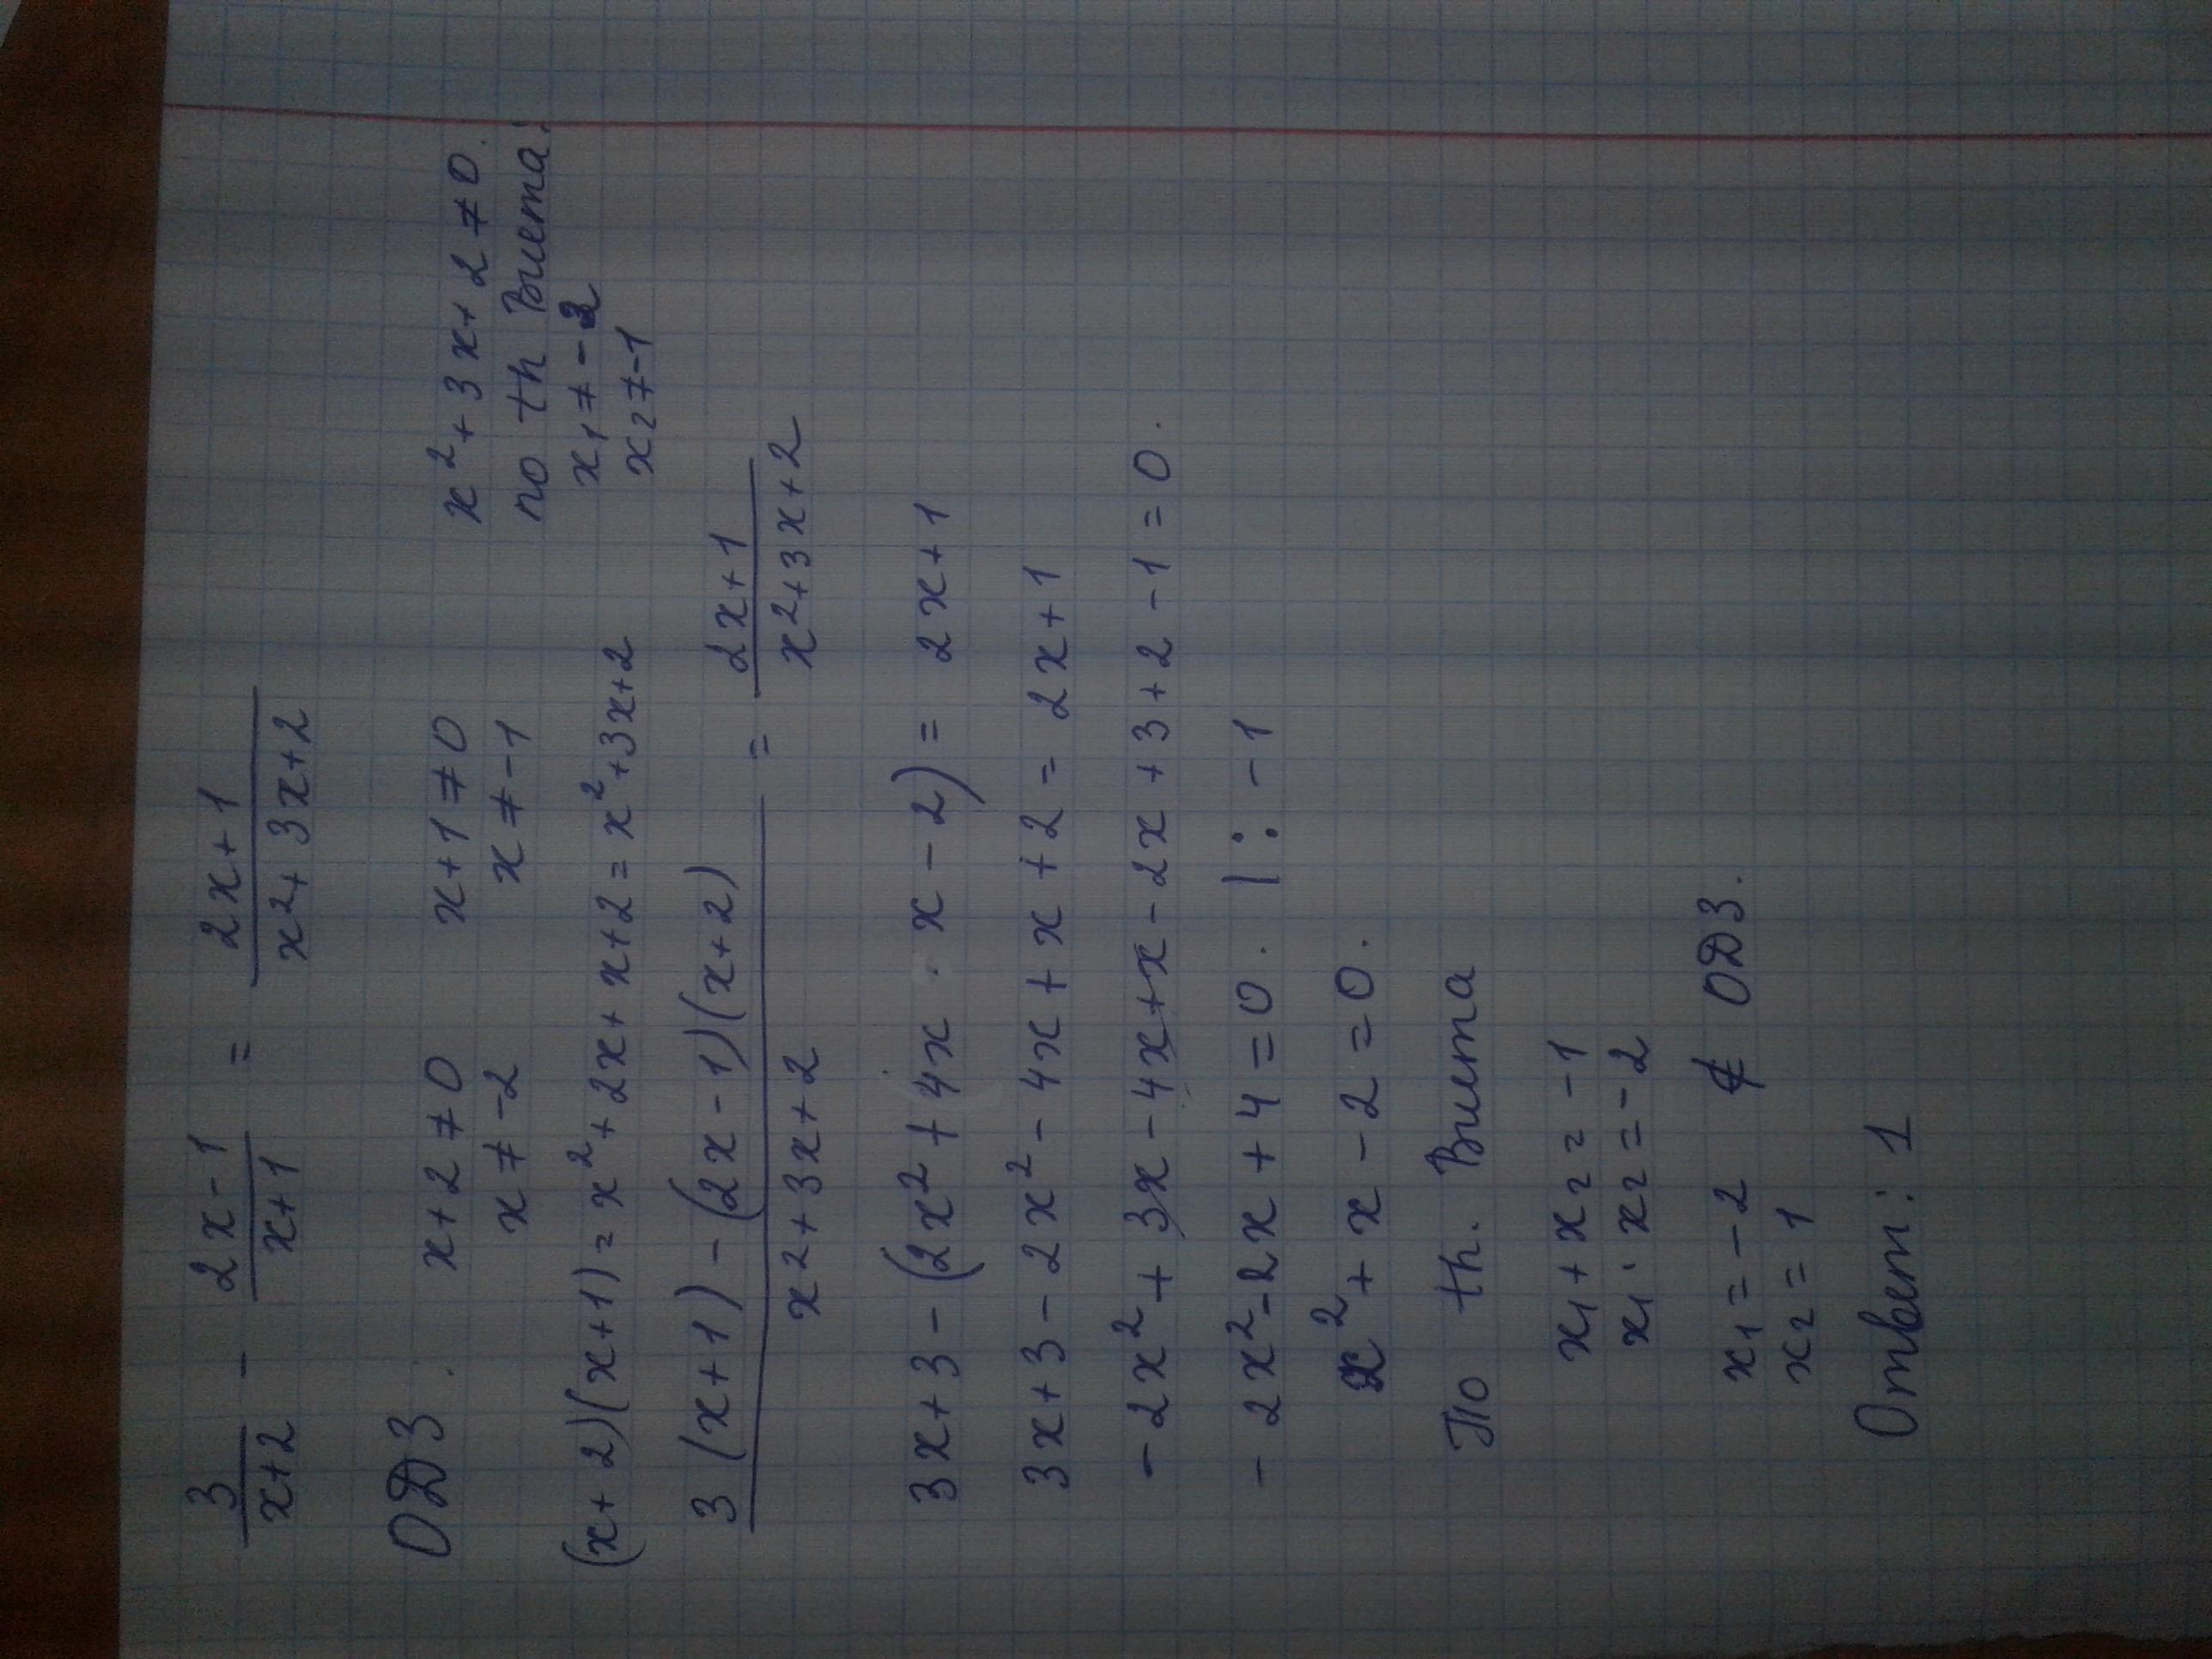 3/(x+2) - (2x-1)/(x+1) = (2x+1)/(x²+3x+2)
ОДЗ. x+2≠0 x+1≠0 x²+3x+2≠0.
x≠-2 x≠-1 по th Виета:
x₁≠-2
x₂≠-1
(x+2)(x+1)=x²+2x+x+2=x²+3x+2
(3(x+1)-(2x-1)(x+2))/(x²+3x+2) = (2x+1)/(x²+3x+2)
3x+3-(2x²+4x x-2)= 2x+1
3x+3-2x²-4x+x+2=2x+1
-2x²+3x-4x+x-2x+3+2-1=0.
-2x²-2x+4=0. |:-1
x²+x-2=0.
По th. Виета
x₁+x₂=-1
x₁·x₂=-2
x₁=-2 ∉ ОДЗ.
x₂=1
Ответ: 1